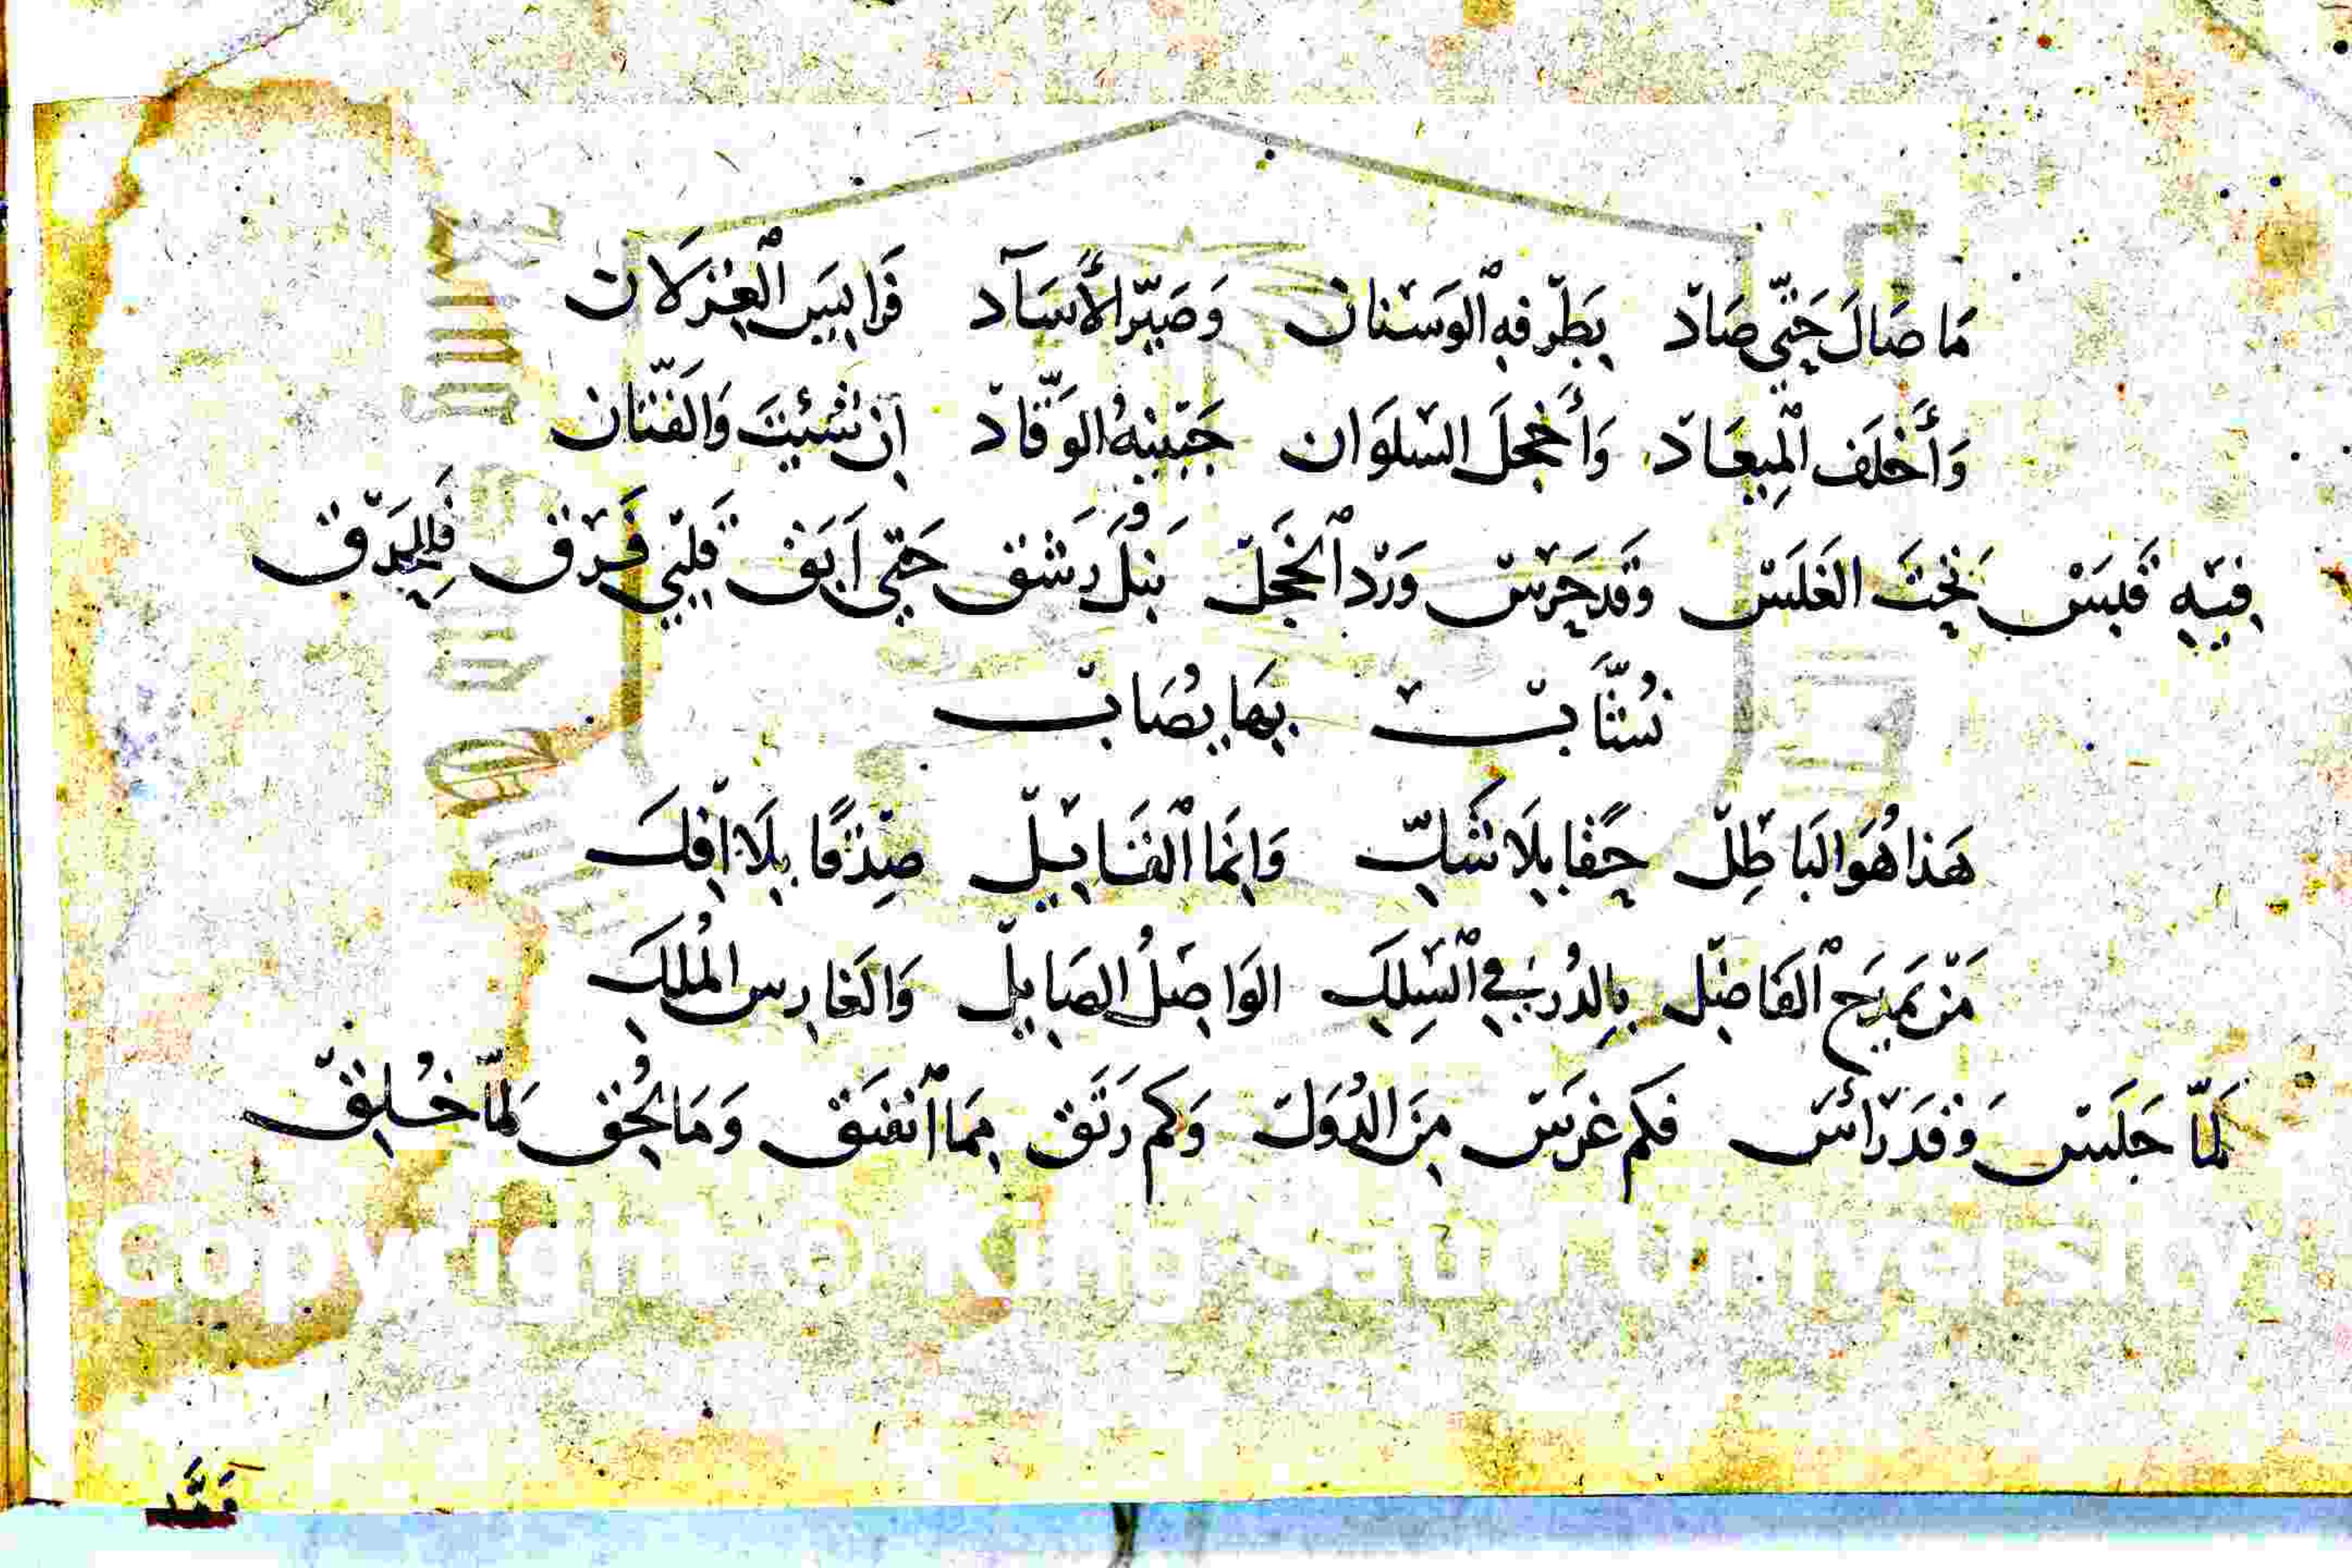 مَا صَالَ حَتّى صَادْ بَطَرْفِهِ الْوَسْنَانْ وَصَيَّرَ الأَسَآدْ فَرَايِسَ الْغِزْلَانْ
وَأَخْلَفَ الْمِيعَادْ وَأَخْجَلَ السُّلْوَانْ جَبِينُهُ الْوَقَّادْ إِنْ شِئْتَ وَالْفَتَّانْ
فِيهِ قَبَسْ تَحْتَ الغَلَسْ وَقَد حَرَسْ وَرْدَ الْخَجَلْ بَنْبلٍ رَشَقْ حَتّى أَبَقْ قَلْبِي فَرَقْ فَالْحَدَقْ
نُشَّابْ بِهَا يُصَابْ
هَذَا هُوَ البَاطِلْ حَقًا بِلَا شَكِّ وَإِنَّمَا الْقَايِلْ صِدْقًا بِلَا إِفْكِ
مَنْ يَمْدَحِ الْفَاضِلْ بِالدُرِّ فِي السِّلْكِ الوَاصِلُ الصَايِلْ وَالْغَارِسِ الْمُلْكِ
لَمَّا جَلَسْ وَقَدْ رَأَسْ فَكَم غَرَسْ مِنَ الدُّوَلْ وَكَم رَتَقْ مِمَا انْفَتَقْ وَمَا لُحِقْ لَمَّا خُلِقْ
Copyright © King Saud University